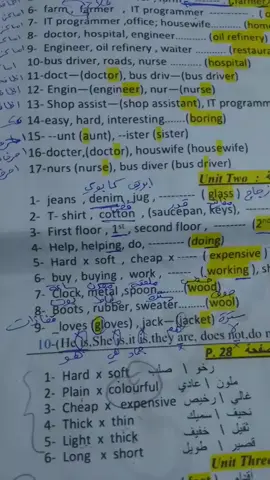 6- farm, farmer , IT programmer
7- IT programmer ,office; housewife...... (home
8- doctor, hospital, engineer.......... (oil refinery)
9- Engineer, oil refinery , waiter ........ (restaura
10-bus driver, roads, nurse .......... (hospital)
11-doct—(doctor), bus driv—(bus driver)
12- Engin—(engineer), nur—(nurse)
13- Shop assist—(shop assistant), IT programm
14-easy, hard, interesting.......(boring)
15- --unt (aunt), --ister (sister)
16-docter,(doctor), houswife (housewife)
17-nurs (nurse), bus diver (bus driver)
Unit Two :
1- jeans , denim, jug , --------- (glass) زجاج
2- T- shirt , cotton , (saucepan, keys), --------
3- First floor , 1st , second floor , --------- (2
4- Help, helping, do, --------- (doing)
5- Hard x soft , cheap x ----- ( expensive )
6- buy , buying , work , ------ (working), sh
7- Clock, metal ,spoon........(wood)
8- Boots , rubber, sweater........(wool)
9- __loves (gloves), jack— (jacket)
10-(He is,She is,it is,they are, does not,do n
P. 28
1- Hard x soft رخو | صلب
2- Plain x colourful ملون | عادي
3- Cheap x expensive غالي | رخيص
4- Thick x thin نحيف | سميك
5- Light x thick ثقيل | خفيف
6- Long x short قصير | طويل
Unit Three